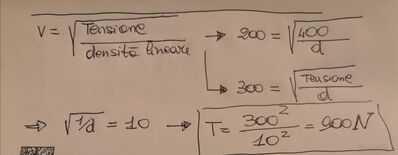 V = √(Tensione / densità lineare) → 200 = √(400 / d)
↳ 300 = √(Tensione / d)
⇒ √(1/d) = 10 → T = 300² / 10² = 900 N